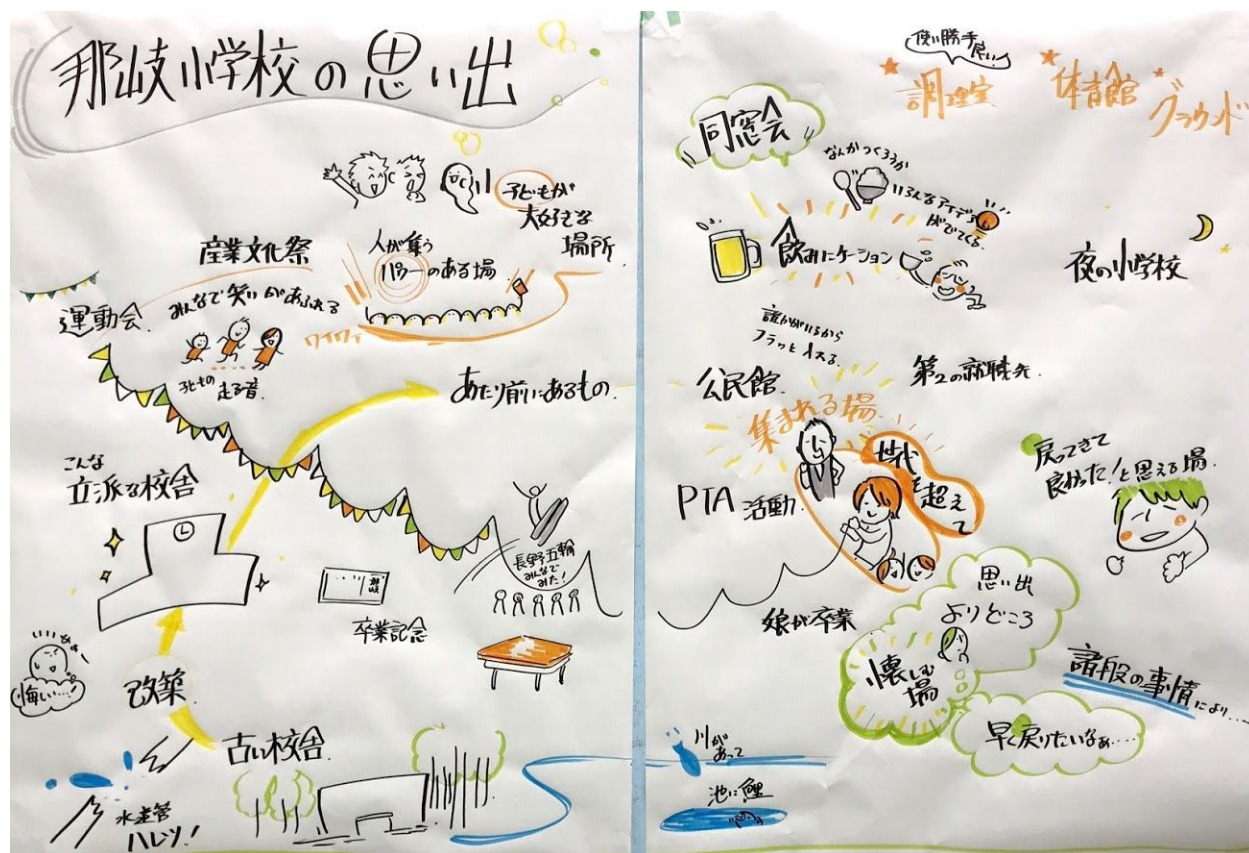 那岐小学校の思い出
子どもが
大好きな
場所
産業文化祭
人が集う
パワーのある場
運動会
みんなで笑いがあふれる
ワイワイ
子どもの
走る音
あたり前にあるもの
こんな
立派な校舎
長野五輪
みんなで
みた!
卒業記念
いいなぁー
悔しい…!
改築
古い校舎
水道管
ハレツ!
使い勝手
良い
調理室
体育館
グラウンド
同窓会
なんかつくろうか
いろんなアイデア
がでてくる
飲みにケーション
夜の小学校
誰かがいるから
フラッと入れる
公民館
第2の就職先
集まれる場
世代
を超え
て
PTA活動
戻ってきて
良かった!と思える場
娘が卒業
思い出
よりどころ
懐しむ
場
諸般の事情により…
早く戻りたいなぁ…
川が
あって
池に鯉